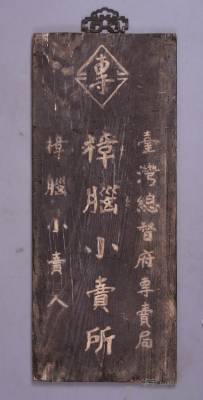 專
臺灣總督府專賣局
樟腦小賣所
樟腦小賣人